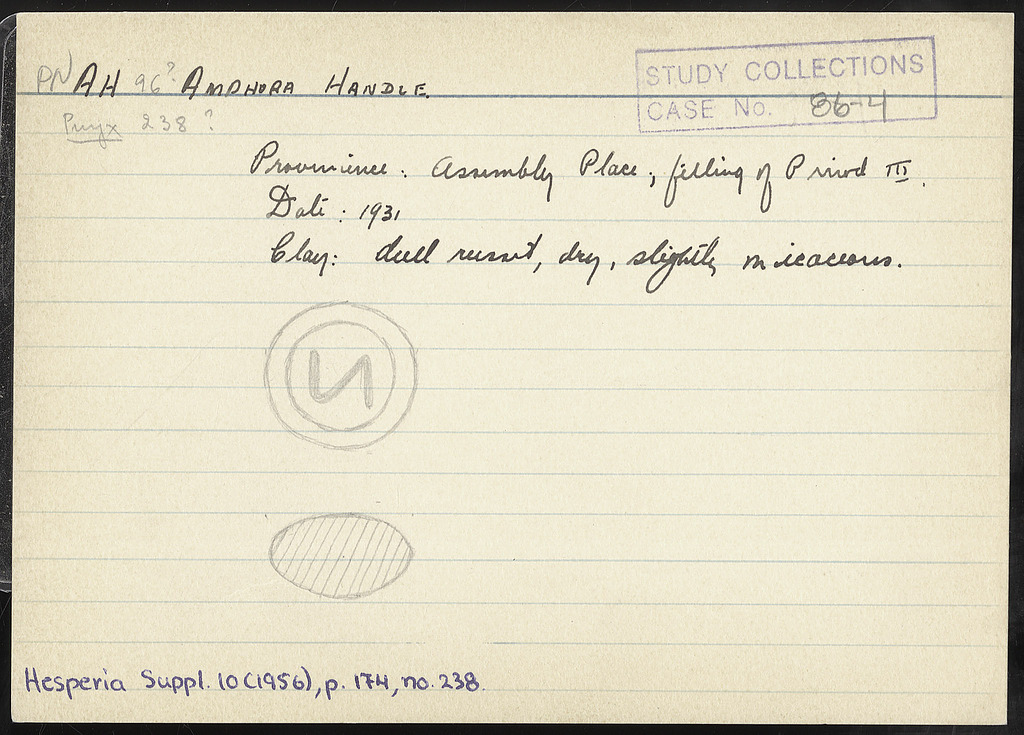 PN AH 96? AMPHORA HANDLE.
STUDY COLLECTIONS
CASE No. 86-4
Pnyx 238 ?
Provenience: Assembly Place, filling of Period III.
Date: 1931
Clay: dull russet, dry, slightly micaceous.
И
Hesperia Suppl. 10 (1956), p. 174, no. 238.